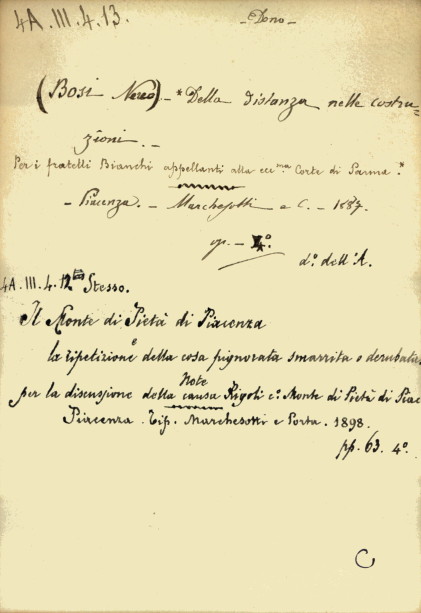 4A. III. 4. 13.
- Dono -
(Bosi Nereo) - "Della distanza nelle costru=
zioni. -
Per i fratelli Bianchi appellanti alla ecc.ma Corte di Parma."
- Piacenza. - Marchesotti e C. - 1887.
op. - 4º.
d.º dell'A.
4A. III. 4. 12 Stesso.
Il Monte di Pietà di Piacenza
e
la ripetizione della cosa pignorata smarrita o derubata.
Note
per la discussione della causa Rigoli c.º Monte di Pietà di Piac
Piacenza. Tip. Marchesotti e Porta. 1898.
pp. 63. 4º.
C